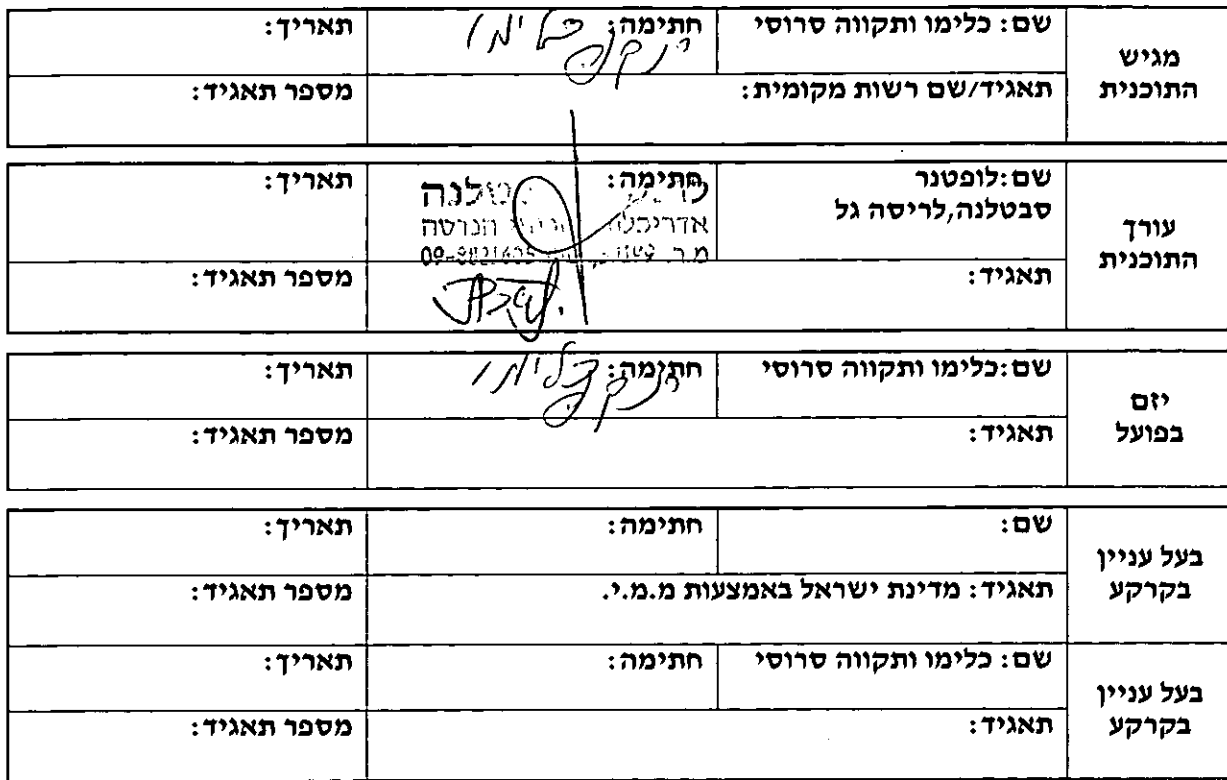 מגיש התוכנית
שם: כלימו ותקווה סרוסי חתימה: תאריך:
תאגיד/שם רשות מקומית: מספר תאגיד:
עורך התוכנית
שם:לופטנר סבטלנה,לריסה גל חתימה: תאריך:
תאגיד: מספר תאגיד:
יזם בפועל
שם:כלימו ותקווה סרוסי חתימה: תאריך:
תאגיד: מספר תאגיד:
בעל עניין בקרקע
שם: חתימה: תאריך:
תאגיד: מדינת ישראל באמצעות מ.מ.י. מספר תאגיד:
בעל עניין בקרקע
שם: כלימו ותקווה סרוסי חתימה: תאריך:
תאגיד: מספר תאגיד: